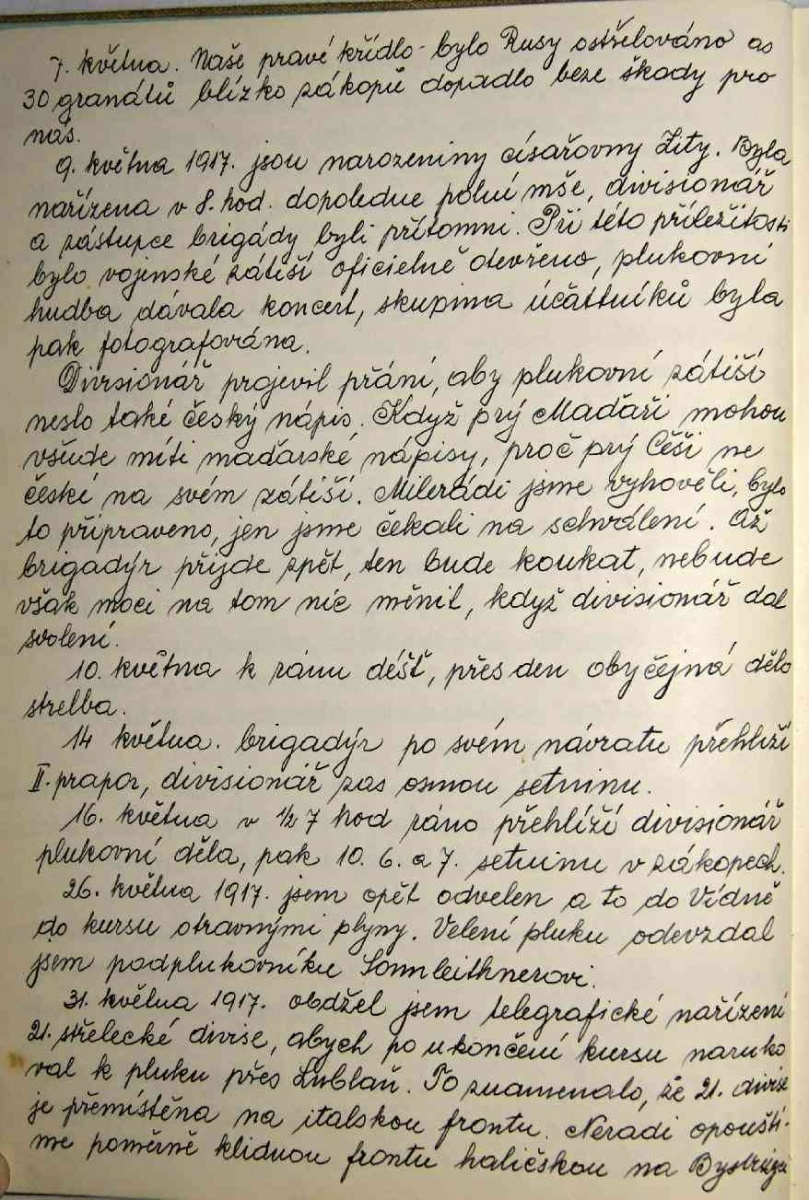 7. května. Naše pravé křídlo bylo Rusy ostřelováno as
30 granátů blízko zákopů dopadlo beze škody pro
nás.
9. května 1917. jsou narozeniny císařovny Zity. Byla
nařízena v 8. hod. dopoledne polní mše, divisionář
a zástupce brigády byli přítomni. Při této příležitosti
bylo vojenské zátiší oficielně otevřeno, plukovní
hudba dávala koncert, skupina účastníků byla
pak fotografována.
Divisionář projevil přání, aby plukovní zátiší
neslo také český nápis. Když prý Maďaři mohou
všude míti maďarské nápisy, proč prý Češi ne
české na svém zátiší. Milerádi jsme vyhověli, bylo
to připraveno, jen jsme čekali na schválení. Až
brigadýr přijde zpět, ten bude koukat, nebude
však moci na tom nic měnit, když divisionář dal
svolení.
10. května k ránu déšť, přes den obyčejná dělo
strelba.
14 května. brigadýr po svém návratu přehlíží
II. prapor, divisionář zas osmou setninu.
16. května v 1/2 7 hod ráno přehlíží divisionář
plukovní děla, pak 10. 6. a 7. setninu v zákopech.
26. května 1917. jsem opět odvelen a to do Vídně
do kursu otravnými plyny. Velení pluku odevzdal
jsem podplukovníku Sonnleithnerovi.
31. května 1917. obdžel jsem telegrafické nařízení
21. střelecké divise, abych po ukončení kursu naruko
val k pluku přes Lublaň. To znamenalo, že 21. divise
je přemístěna na italskou frontu. Neradi opouští-
me poměrně klidnou frontu haličskou na